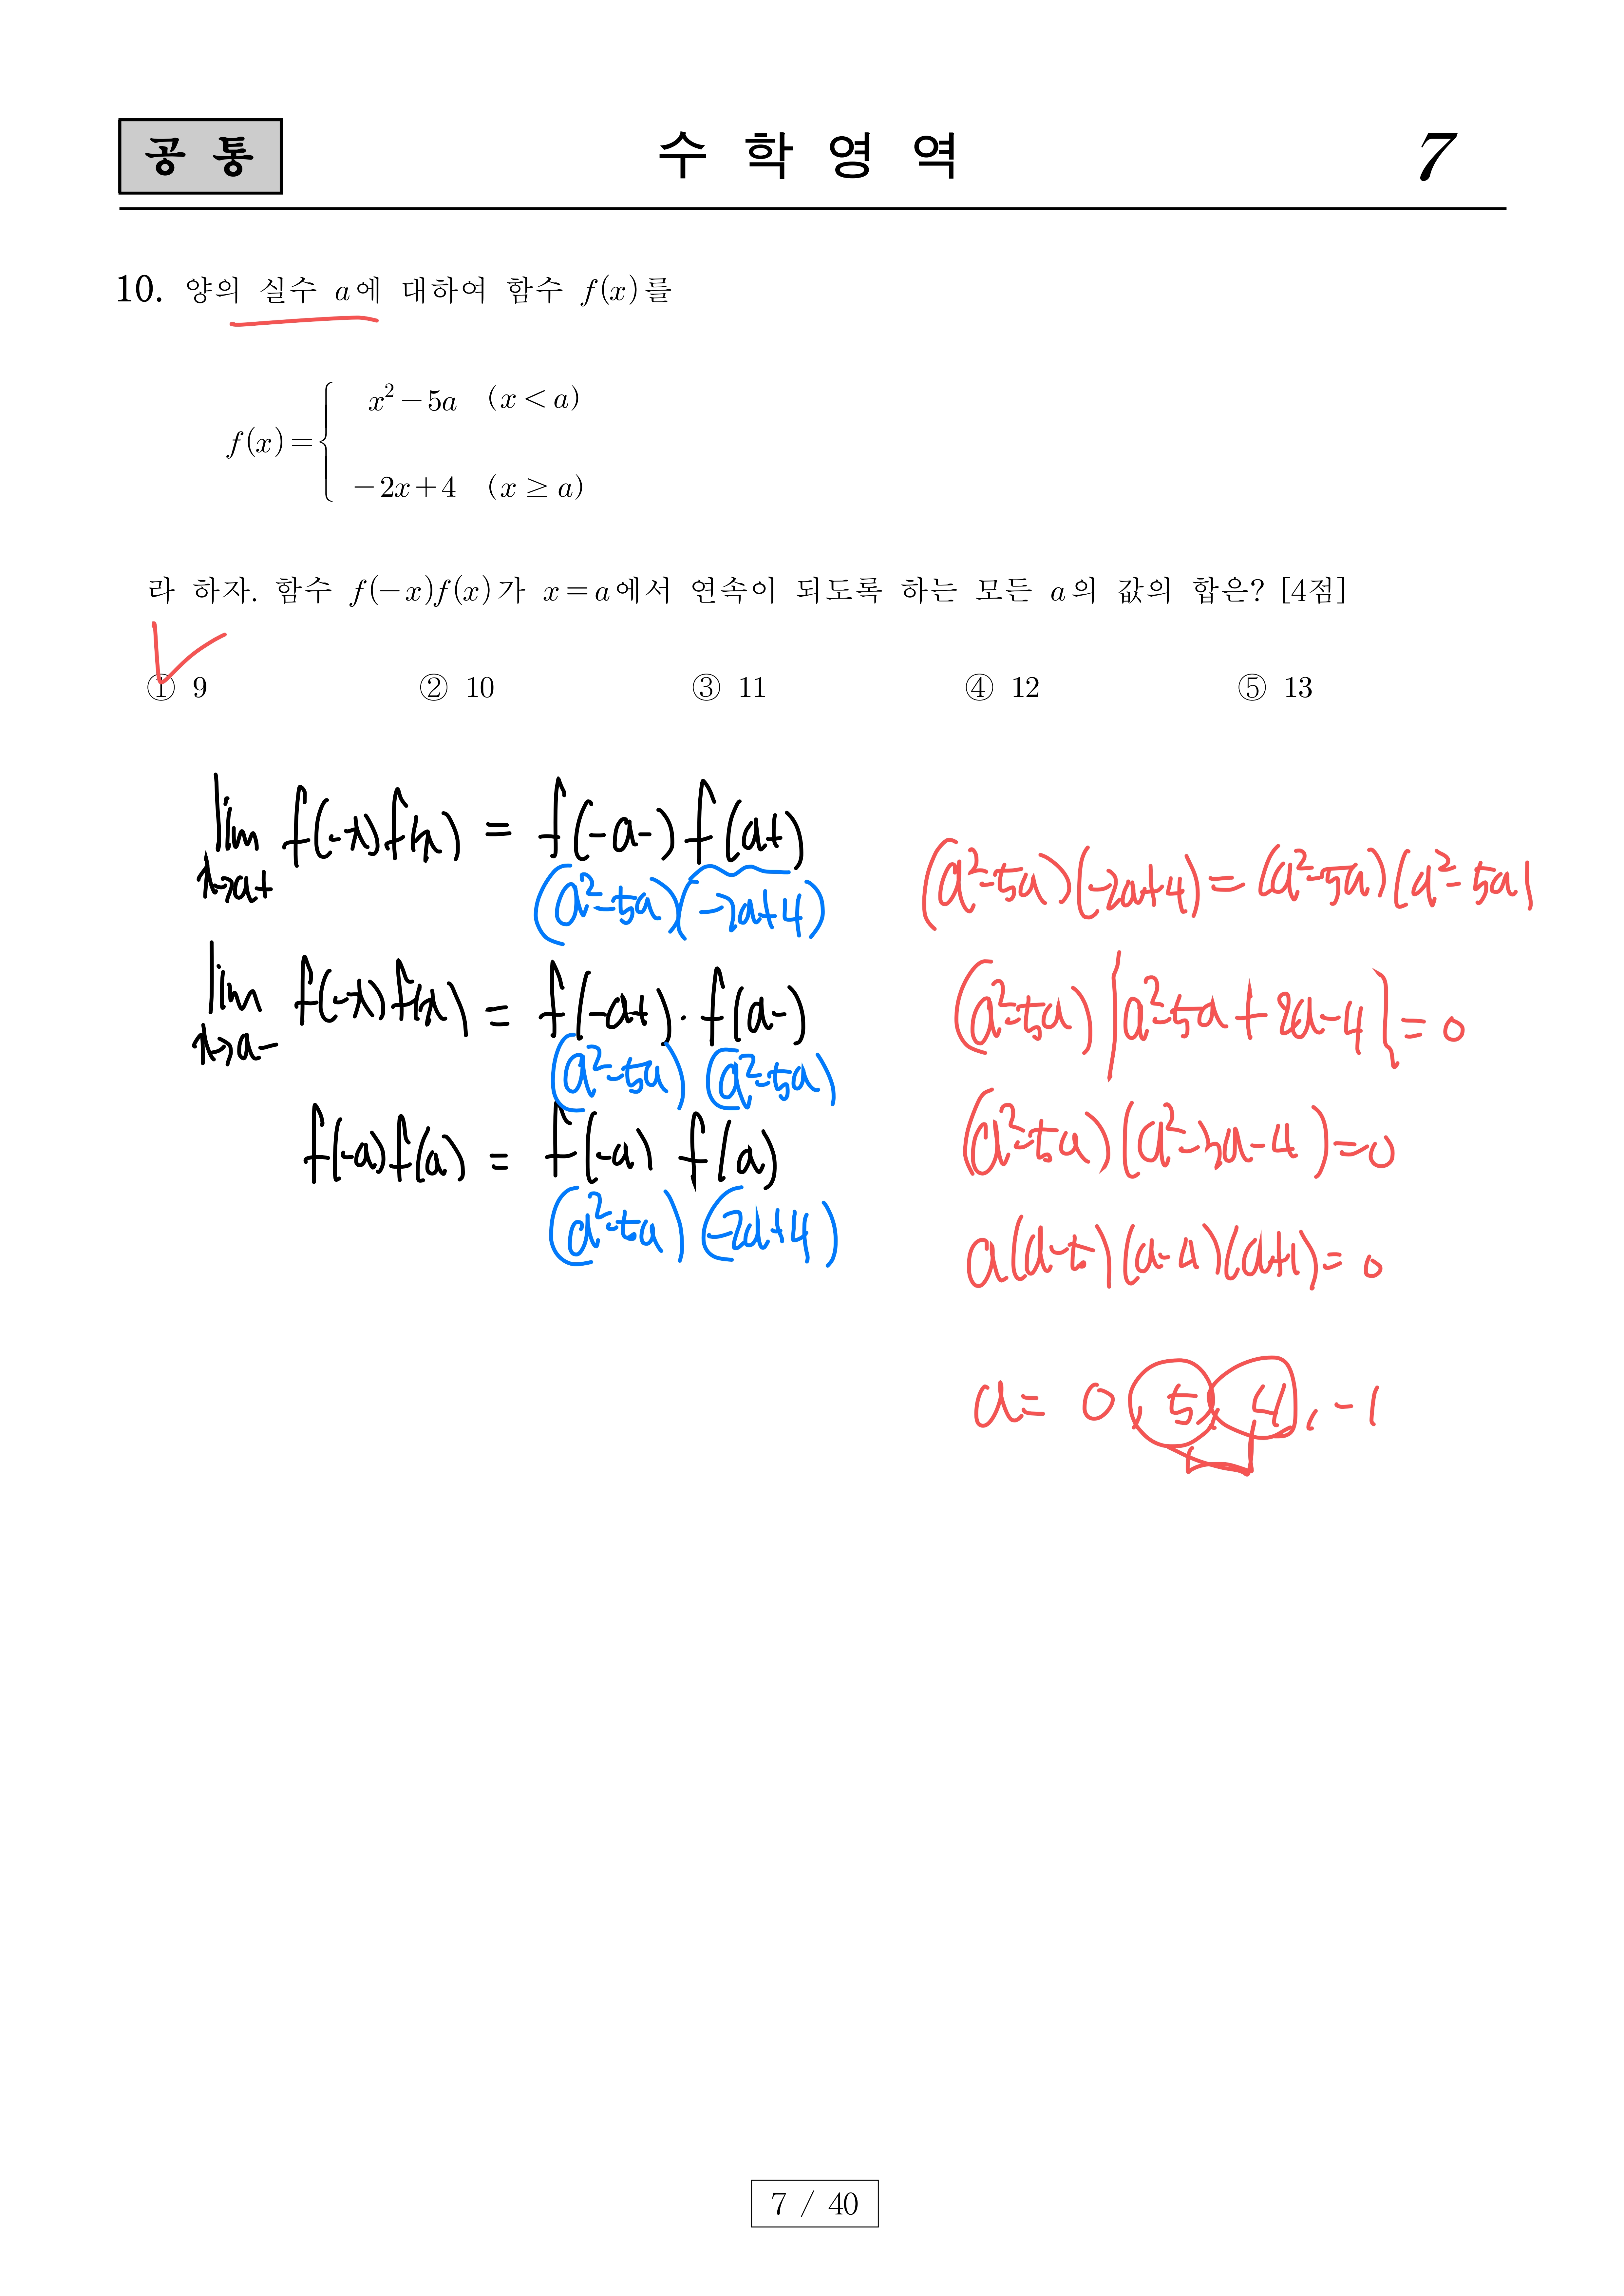 공 통
수 학 영 역
7
10. 양의 실수 a에 대하여 함수 f(x)를
f(x)={ x²-5a (x < a)
-2x+4 (x ≥ a)
라 하자. 함수 f(-x)f(x)가 x=a에서 연속이 되도록 하는 모든 a의 값의 합은? [4점]
① 9 ② 10 ③ 11 ④ 12 ⑤ 13
lim f(-x)f(x) = f(-a-)f(a+)
x→a+
(a²-5a)(-2a+4)
lim f(-x)f(x) = f(-a+)·f(a-)
x→a-
(a²-5a)(a²-5a)
f(-a)f(a) = f(-a) f(a)
(a²-5a)(-2a+4)
(a²-5a)(-2a+4)=(a²-5a)(a²-5a)
(a²-5a){a²-5a+2a-4}=0
(a²-5a)(a²-3a-4)=0
a(a-5)(a-4)(a+1)=0
a= 0, 5, 4, -1
7 / 40